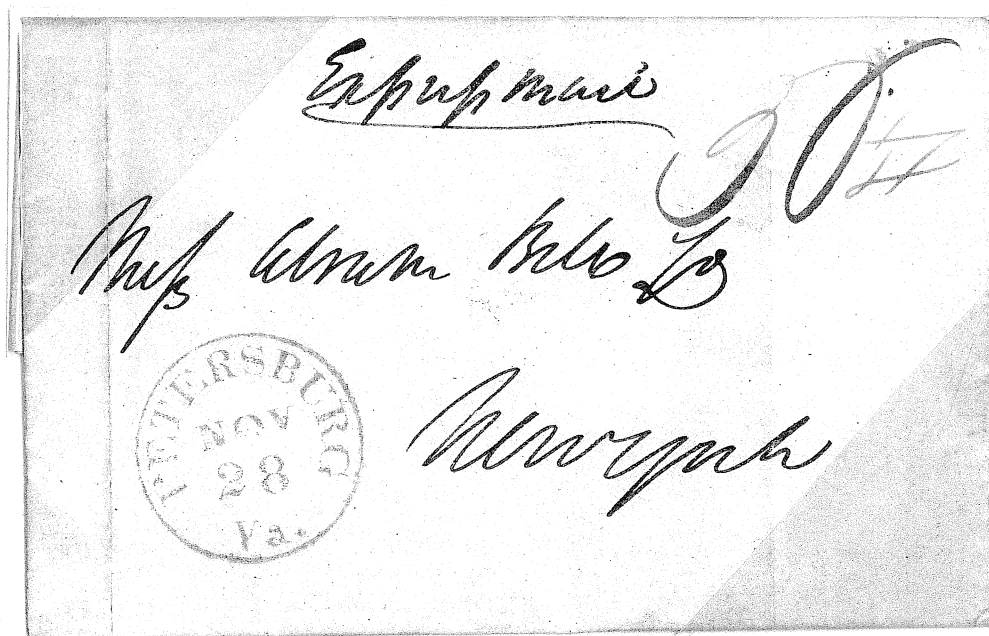 Express Mail
Mess Abraham Bell & Co
New york
PETERSBURG
NOV
28
Va.